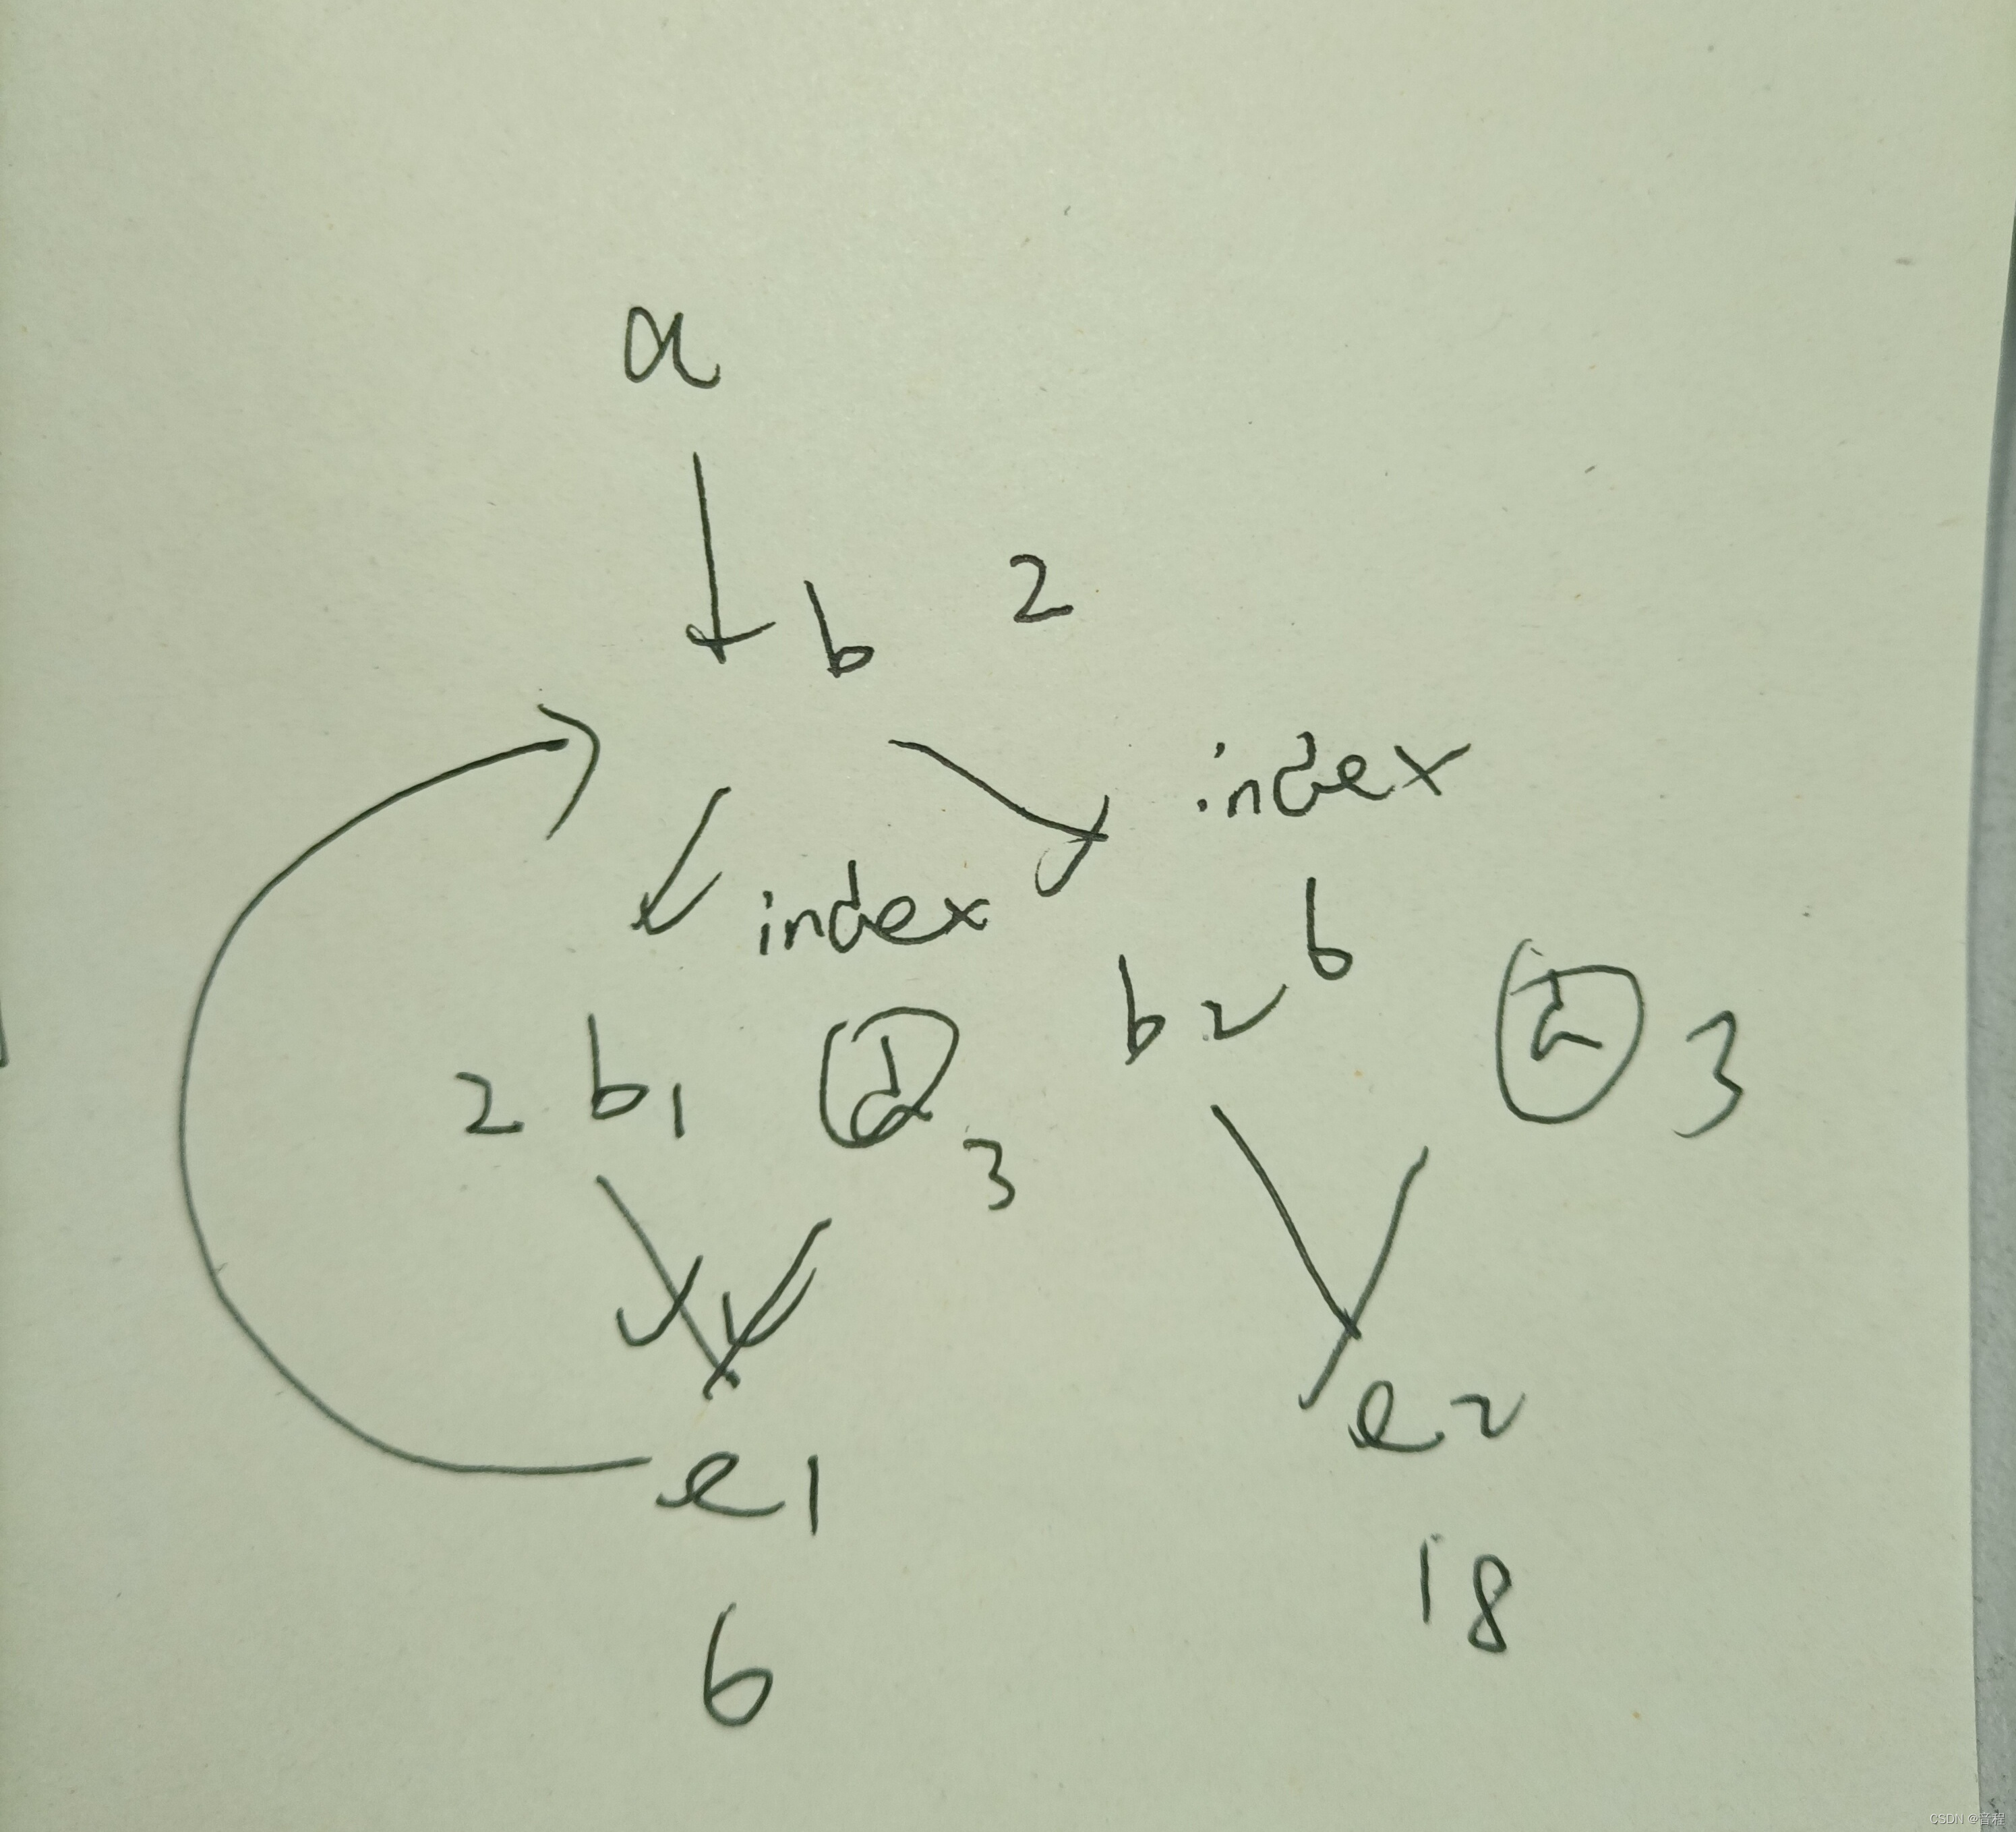 a
b 2
index
index
b2 6
2 b1 d 3
3
e1
e2
18
6
CSDN @音程